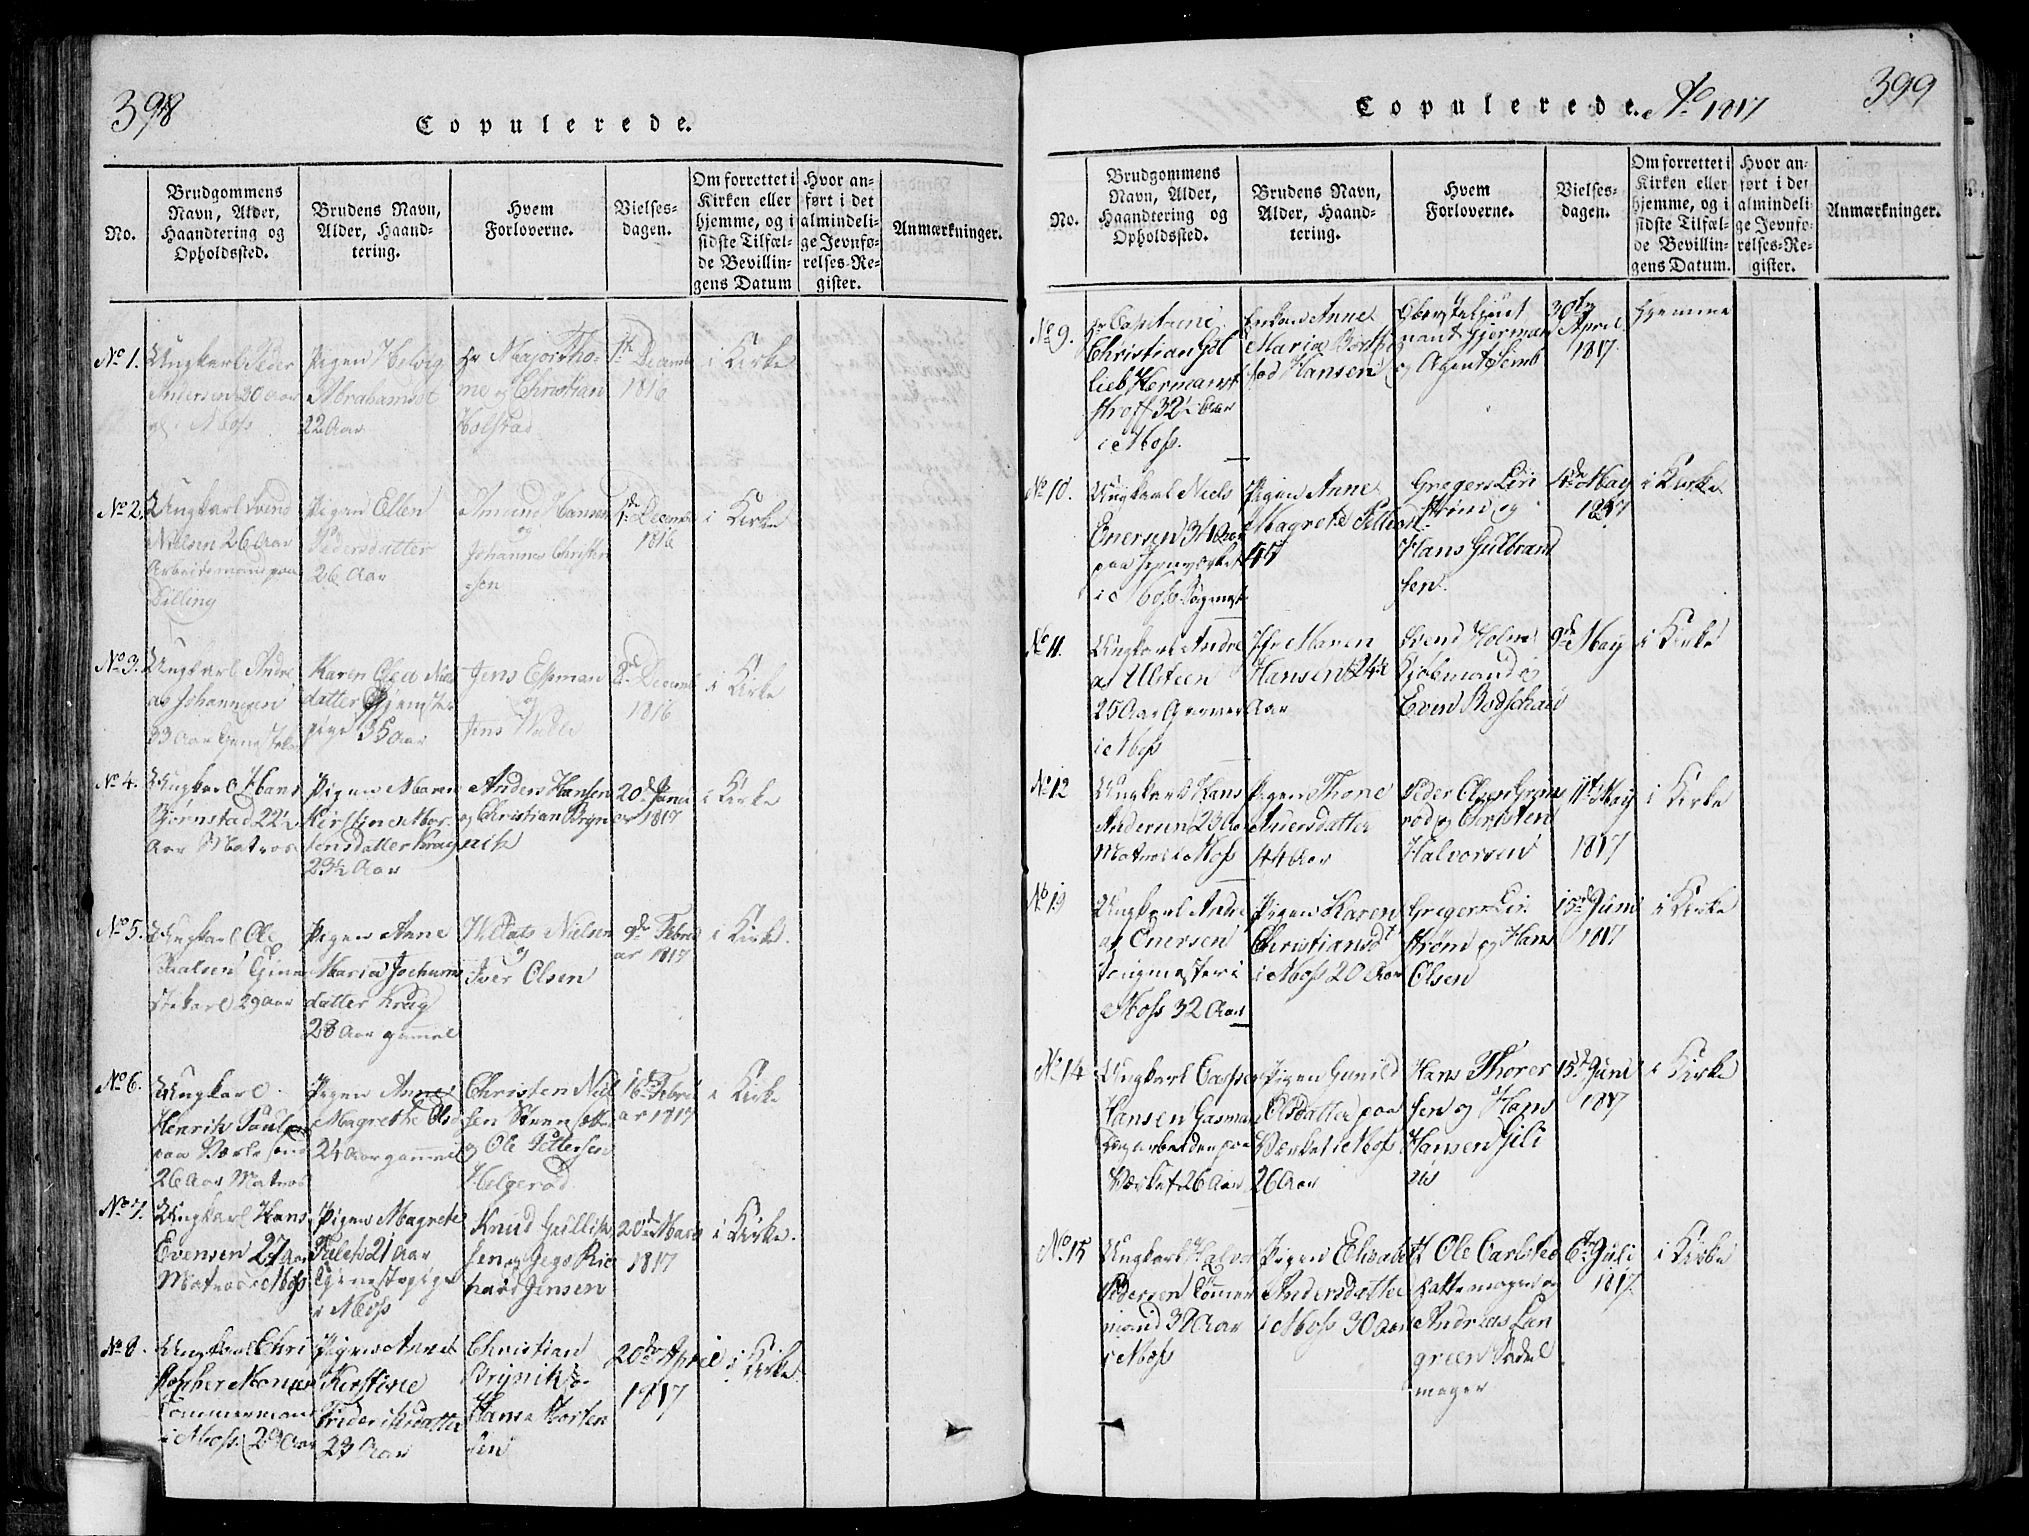 398
Copulerede.
No.
Brudgommens
Navn, Alder,
Haandtering og
Opholdssted.
Brudens Navn,
Alder, Haand-
tering.
Hvem
Forloverne.
Vielses-
dagen.
Om forrettet i
Kirken eller
hjemme, og i
sidste Tilfæl-
de Bevillin-
gens Datum
Hvor an-
ført i det
almindeli-
ge Jevnfø-
relses-Re-
gister.
Anmærkninger.
No 1.
Ungkarl Peder
Andersen 30 Aar
Moss
Pigen Helvig
Abrahamsd
22 Aar
Hr Major Tho-
me og Christian
Holstad
1ste Decemb
1816
i Kirke
No 2.
Ungkarl Svend
Nielsen 26 Aar
Arbeidsmand paa
Dilling
Pigen Ellen
Pedersdatter
26 Aar
Amund Hansen
og
Johannes Christen
sen
1ste Decemb
1816
i Kirke
No 3.
Ungkarl Andre
as Johannesen
33 Aar
Karen Olea Niels
datter Tjenste
pige 35 Aar
Jens Essman
og
Jens Walle
Decemb
1816
i Kirke
No 4.
Ungkarl Hans
Bjørnstad 22½
Aar Matros
Pigen Maren
Kirstine Mor-
tensdatter Krag
23½ Aar
Anders Hansen
og Christian Bryn
nik
20de Janu
ar 1817
i Kirke
No 5.
Ungkarl Ole
Tjene
stekarl 29 Aar
Pigen Anne
Maria Jochums
datter Krag
28 Aar gammel
Nielsen
og
Iver Olsen
9de Febru
ar 1817
i Kirke.
No 6.
Ungkarl
Henrik Poulsen
paa Værlesand
26 Aar Matros
Pigen Anne
Magrethe Ols
24 Aar gammel
Christen Niel
sen Steensætter
og Ole Pettersen
Helgerød
16de Febru
ar 1817
i Kirke
No 7.
Ungkarl Hans
Evensen 27 Aar
Matros i Moss
Pigen Magrete
Falch 21 Aar
Tjenestepige
i Moss
Knud Gullik
sen og Jegs Ric
hard Jensen
20de Marts
1817
i Kirke.
No 8.
Ungkarl Chri
stopher Monsen
Tømmermand
i Moss 29 Aar
Pigen Anne
Kirstine
Frideriksdatter
23 Aar
Christian
Brynik og
Hans Morten
sen
20de April
1817
i Kirke
399
Copulerede. Ao 1817
No.
Brudgommens
Navn, Alder,
Haandtering og
Opholdssted.
Brudens Navn,
Alder, Haand-
tering.
Hvem
Forloverne.
Vielses-
dagen.
Om forrettet i
Kirken eller
hjemme, og i
sidste Tilfæl-
de Bevillin-
gens Datum.
Hvor an-
ført i det
almindeli-
ge Jevnfø-
relses-Re-
gister.
Anmærkninger.
No 9.
Hr Capitaine
Christian Got
lieb Hermanst
storff 32½ Aar
i Moss.
Enken Anne
Maria
fød Hansen
Oberstelieut
nant Hjerman
og Agent Semb
30te
April
1817
Hjemme
No 10.
Ungkarl Niels
Enersen 34 Aar
paa Jernværket
i Moss
Pigen Anne
Magrete
47
Gregers Lin
strøm og
Hans Gulbrand
sen.
4de May
1817
i Kirke
No 11.
Ungkarl Andre
as Ulsteen
25 Aar Garver
i Moss
Jfr Maren
Hansen 24½
Aar
Svend Holm
Kjøbmand og
Even Bodschau
9de May
i Kirke
No 12
Ungkarl Hans
Andersen 23 Aar
Matros i Moss
Pigen Thone
Auersdatter
44 Aar
Peder Olsen Grim
rød og Christen
Halvorsen
11te May
1817
i Kirke
No 13
Ungkarl Andre
as Enersen
i
Moss 32 Aar
Pigen Karen
Christiansdt
i Moss 20 Aar
Gregers Lin
strøm og Hans
Olsen
15de Juni
1817
i Kirke
No 14
Ungkarl Casper
Hansen Gasman
arbeider paa
Værket 26 Aar
Pigen Gunild
Olsdatter paa
Værket i Moss
26 Aar
Hans Thorer
sen og Hans
Hansen Gili
us
15de Juni
1817
i Kirke
No 15
Ungkarl Halvor
Pedersen Tømmer
mand 39 Aar
i Moss
Pigen Elisabeth
Andersdatter
i Moss 30 Aar
Ole Carlsted
Hattemager og
Andreas Lun
green Sadel
mager
6te Juli
1817.
i Kirke